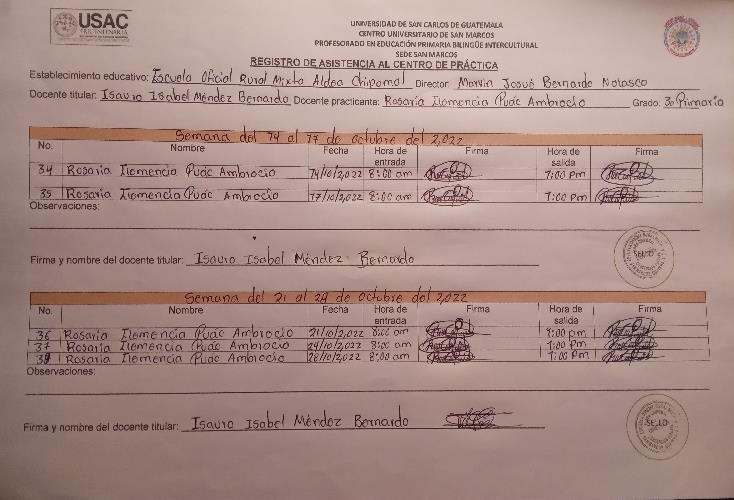 USAC
TRICENTENARIA
UNIVERSIDAD DE SAN CARLOS DE GUATEMALA
CENTRO UNIVERSITARIO DE SAN MARCOS
PROFESORADO EN EDUCACIÓN PRIMARIA BILINGÜE INTERCULTURAL
SEDE SAN MARCOS
REGISTRO DE ASISTENCIA AL CENTRO DE PRÁCTICA
Establecimiento educativo: Escuela Oficial Rural Mixta Aldea Chipomal Director: Marvin Josué Bernardo Nolasco
Docente titular: Isauro Isabel Méndez Bernardo Docente practicante: Rosaria Ilemencia Puác Ambrocio Grado: 3o Primaria
Semana del 14 al 17 de octubre del 2,022
No. Nombre Fecha Hora de entrada Firma Hora de salida Firma
34 Rosaria Ilemencia Puác Ambrocio 14/10/2,022 8:00 am 1:00 Pm
35 Rosaria Ilemencia Puác Ambrocio 17/10/2,022 8:00 am 1:00 Pm
Observaciones:
Firma y nombre del docente titular: Isauro Isabel Méndez Bernardo
SELLO
Semana del 21 al 28 de octubre del 2,022
No. Nombre Fecha Hora de entrada Firma Hora de salida Firma
36 Rosaria Ilemencia Puác Ambrocio 21/10/2,022 8:00 am 1:00 pm
37 Rosaria Ilemencia Puác Ambrocio 24/10/2,022 8:00 am 1:00 Pm
38 Rosaria Ilemencia Puác Ambrocio 28/10/2,022 8:00 am 1:00 Pm
Observaciones:
Firma y nombre del docente titular: Isauro Isabel Méndez Bernardo
SELLO